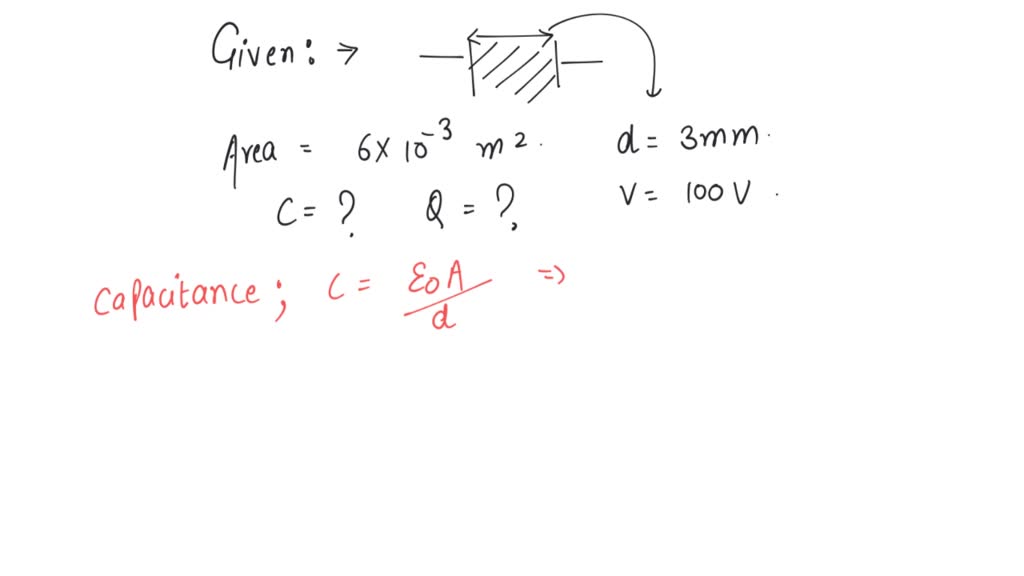 Given: →
Area = 6 × 10⁻³ m². d = 3mm.
C = ? Q = ? V = 100 V.
Capacitance; C = ε₀A/d ⇒